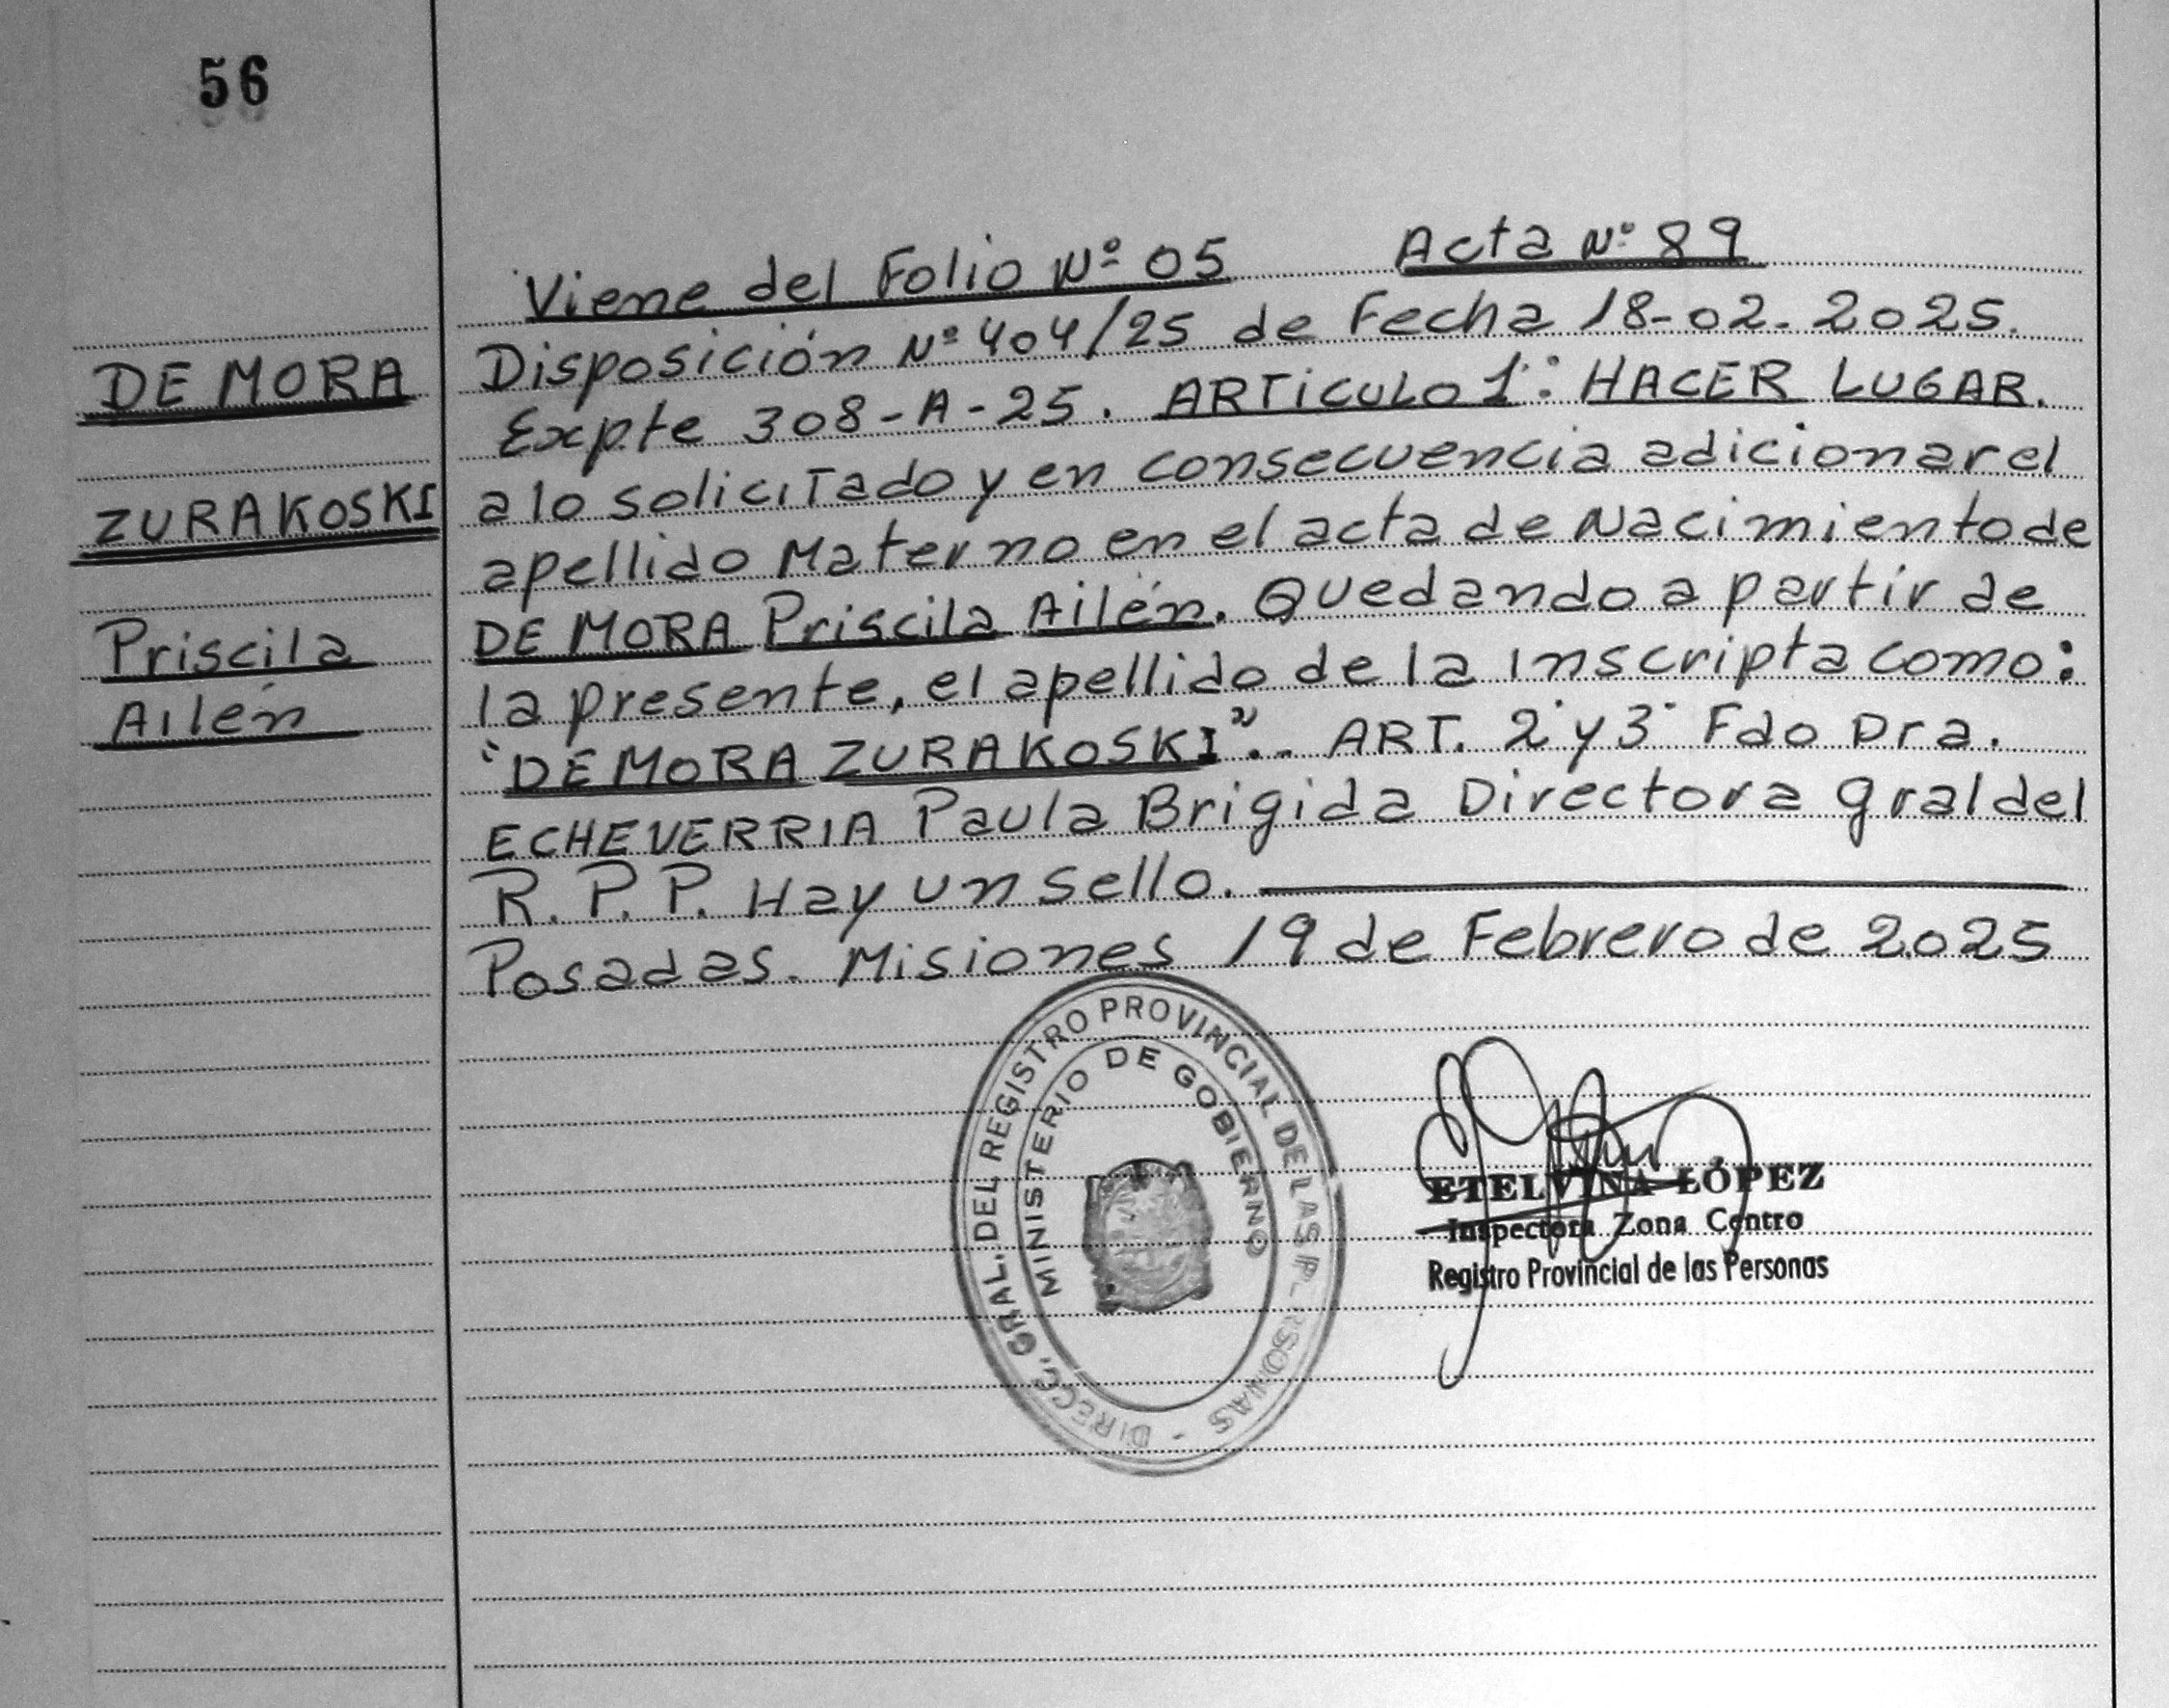 56
DE MORA
ZURAKOSKI
Priscila
Ailén
Viene del Folio Nº 05 Acta Nº 89
Disposición Nº 404/25 de Fecha 18-02-2025.
Expte 308-A-25. ARTiCULO 1°: HACER LUGAR.
a lo solicitado y en consecuencia adicionar el
apellido Materno en el acta de Nacimiento de
DE MORA Priscila Ailén. Quedando a partir de
la presente, el apellido de la inscripta como:
"DE MORA ZURAKOSKI".- ART. 2° y 3° Fdo Dra.
ECHEVERRIA Paula Brigida Directora gral del
R. P. P. Hay un sello.
Posadas. Misiones 19 de Febrero de 2025
DIRECC. GRAL. DEL REGISTRO PROVINCIAL DE LAS PERSONAS -
MINISTERIO DE GOBIERNO
ETELVINA LÓPEZ
Inspectora Zona Centro
Registro Provincial de las Personas